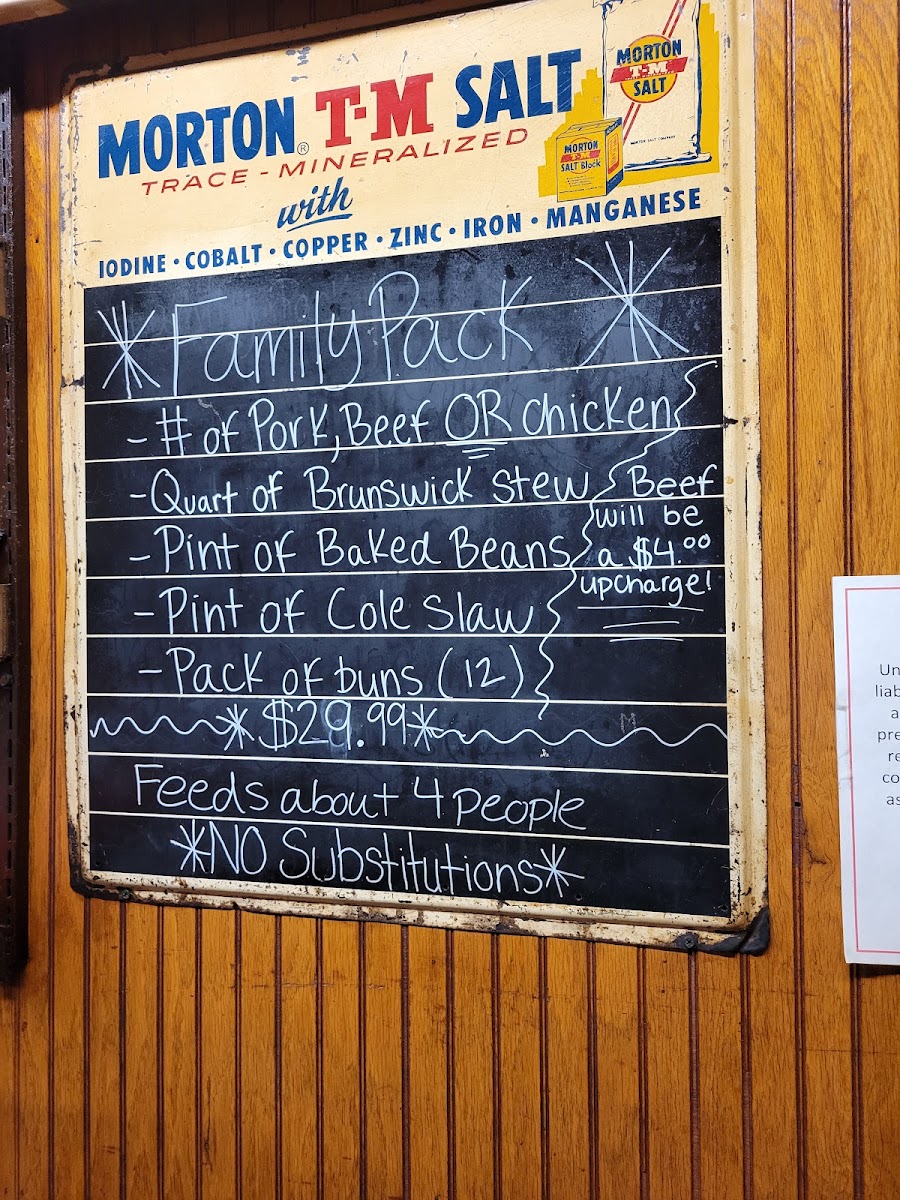 MORTON® T-M SALT
TRACE - MINERALIZED
with
IODINE • COBALT • COPPER • ZINC • IRON • MANGANESE
MORTON
T-M
SALT
MORTON SALT COMPANY
MORTON
T-M
SALT Block
*Family Pack*
- # of Pork, Beef OR Chicken
- Quart of Brunswick Stew
- Pint of Baked Beans
- Pint of Cole Slaw
- Pack of buns (12)
Beef
will be
a $4.00
upcharge!
*$29.99*
Feeds about 4 people
*NO Substitutions*
Un
liab
a
pre
re
co
as